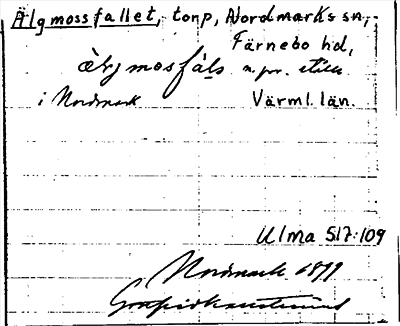 Älgmossfallet, torp, Nordmarks sn,
Färnebo hd,
älgmosfals n. pr. ställe
i Nordmark Värml. län.
Ulma 517:109
Nordmark 1899